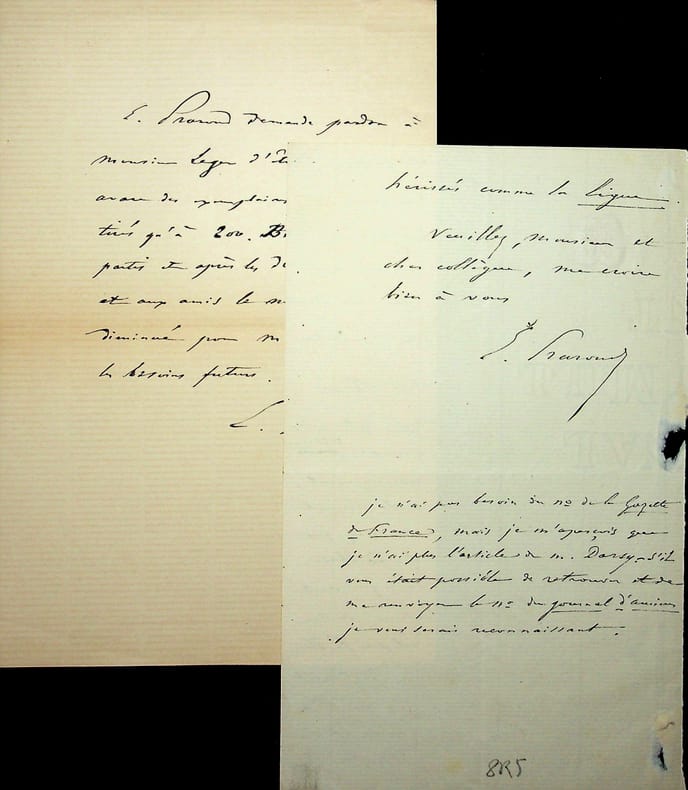 E. Prarond demande pardon à
monsieur Leger d'êt
avare des exemplaires
tirés qu'à 200. B
partis et après les d
et aux amis le n
diminué pour m
les besoins futurs.
E.
hérissés comme la ligue.
Veuillez, monsieur et
cher collègue, me croire
bien à vous
E. Prarond
je n'ai pas besoin du no de la Gazette
de France, mais je m'aperçois que
je n'ai plus l'article de m. Darsy. S'il
vous était possible de retrouver et de
me renvoyer le no du journal d'amiens
je vous serais reconnaissant.
8R5